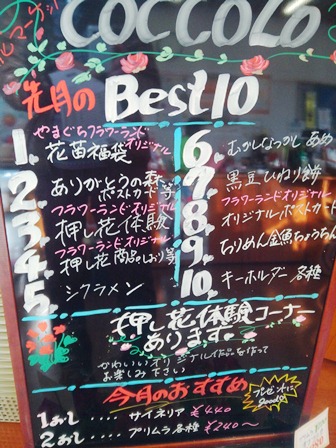 COCCOLO
先月の Best10
1. やまぐちフラワーランド オリジナル
花苗福袋
2. ありがとうの森
ポストカード等
3. フラワーランドオリジナル
押し花体験
4. フラワーランドオリジナル
押し花商品(しおり等)
5. シクラメン
6. むかしなつかし あめ
7. 黒豆ひねり餅
8. フラワーランドオリジナル
オリジナルポストカード
9. ちりめん金魚ちょうちん
10. キーホルダー 各種
押し花体験コーナー
あります
かわいいオリジナル作品を作って
お楽しみ下さい
今月のおすすめ
プレゼントに
good!!
1おし.... サイネリア ¥440
2おし.... プリムラ各種 ¥240〜